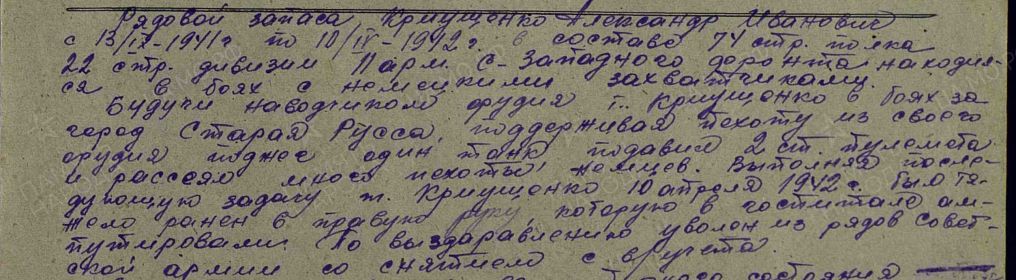 Рядовой запаса Криущенко Александр Иванович
с 13/IX-1941 г. по 10/IV-1942 г. в составе 74 стр. полка
22 стр. дивизии 11 арм. С-Западного фронта находил-
ся в боях с немецкими захватчиками.
Будучи наводчиком орудия т. Криущенко в боях за
город Старая Русса, поддерживая пехоту из своего
орудия поджег один танк, подавил 2 ст. пулемета
и рассеял много пехоты немцев. Выполняя после-
дующую задачу т. Криущенко 10 апреля 1942 г. был тя-
жело ранен в правую руку, которую в госпитале ам-
путировали. По выздаравлению уволен из рядов Совет-
ской армии со снятием с вучета.
состояния